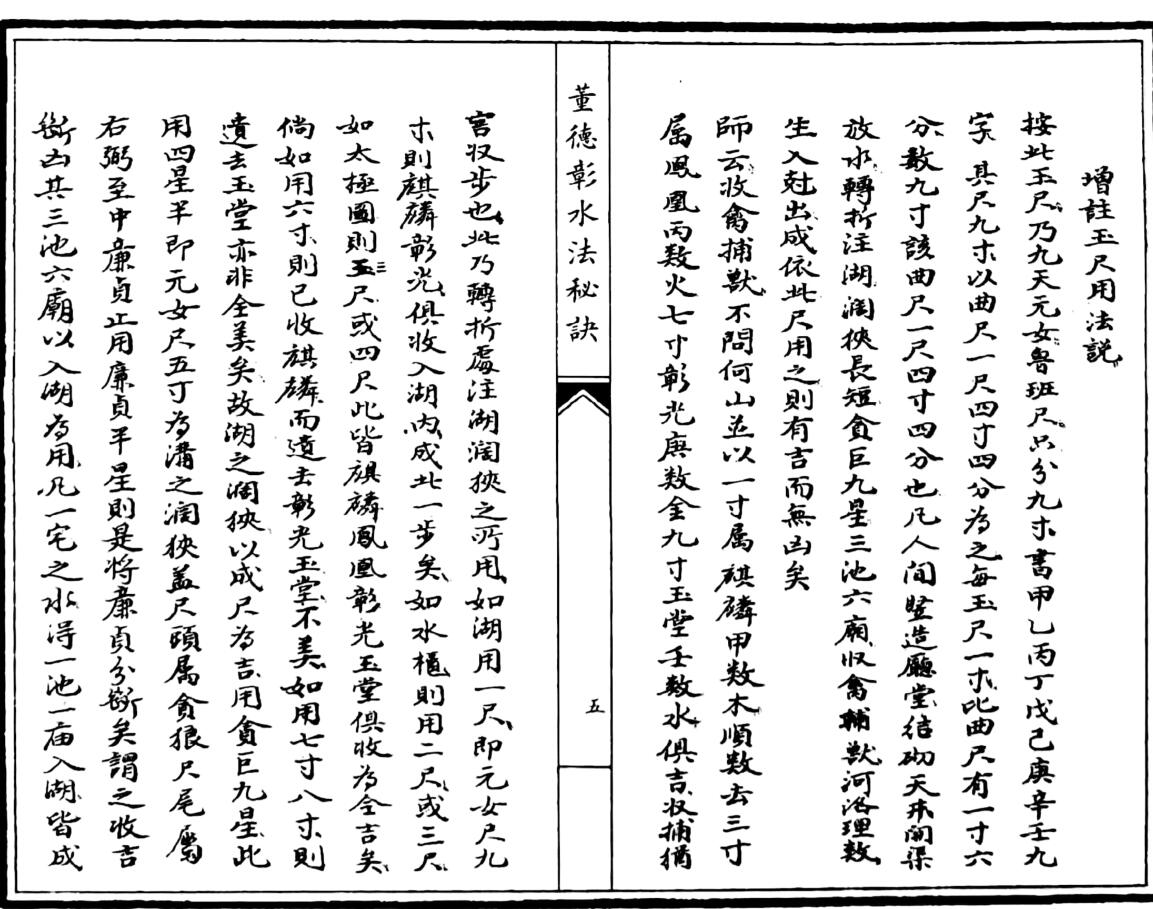 增註玉尺用法説
按此玉尺乃九天元女魯班尺只分九寸書甲乙丙丁戊己庚辛壬九
字其尺九寸以曲尺一尺四寸四分為之每玉尺一寸比曲尺有一寸六
分數九寸該曲尺一尺四寸四分也凡人间竪造廳堂结砌天井開渠
放水轉折注湖濶狹長短貪巨九星三池六廟収禽輔獸河洛理数
生入尅出成依此尺用之則有吉而無凶矣
師云收禽捕獸不問何山並以一寸属麒麟甲数木順數去三寸
屬鳳凰丙数火七寸彰光庚数金九寸玉堂壬数水俱吉収捕猶
宫収步也此乃轉折處注湖濶狹之所用如湖用一尺即元女尺九
寸則麒麟彰光俱收入湖内成此一步矣如水櫃則用二尺或三尺
如太極圖則三五尺或四尺此皆麒麟鳳凰彰光玉堂俱收為全吉矣
倘如用六寸則已收麒麟而遺去彰光玉堂不美如用七寸八寸則
遺去玉堂亦非全美矣故湖之濶狹以成尺為吉用貪巨九星此
用四星半即元女尺五寸為溝之濶狹盖尺頭属貪狼尺尾屬
右弼至中廉貞止用廉貞半星則是將廉貞分斷矣謂之收吉
斷凶其三池六廟以入湖為用凡一宅之水得一池一庙入湖皆成
董德彰水法秘訣
五